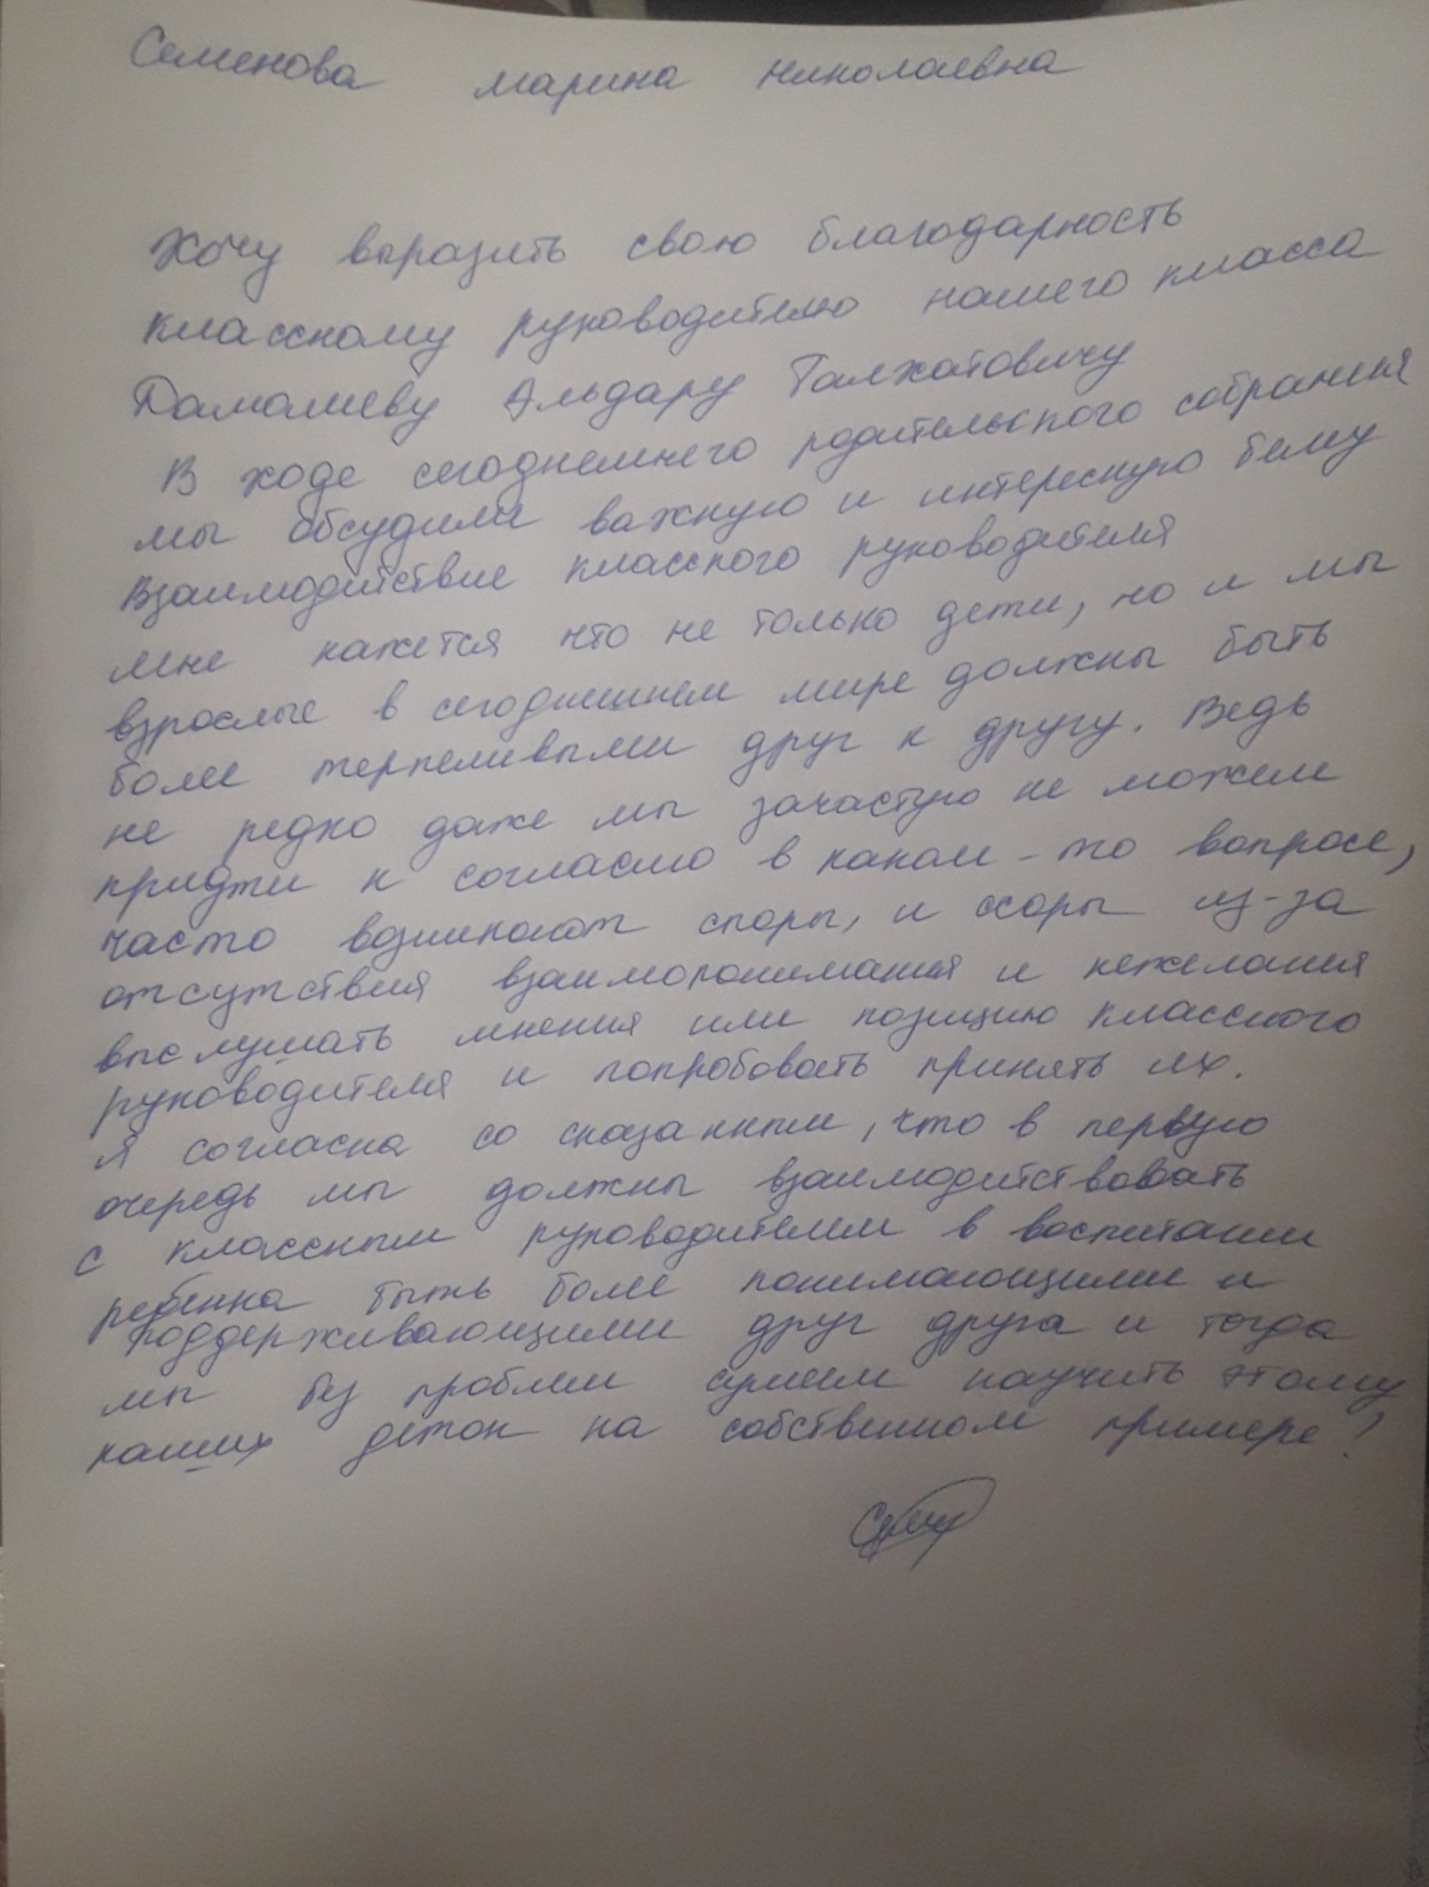 Семенова Марина Николаевна
Хочу выразить свою благодарность
классному руководителю нашего класса
Дамалиеву Альдару Талхатовичу
В ходе сегоднешнего родительского собрания
мы обсудили важную и интересную тему
Взаимодействие классного руководителя
мне кажется что не только дети, но и мы
взрослые в сегоднишнем мире должны быть
более терпеливыми друг к другу. Ведь
не редко даже мы зачастую не можем
придти к согласию в каком-то вопросе,
часто возникают споры, и ссоры из-за
отсутствия взаимопонимания и нежелания
выслушать мнения или позицию классного
руководителя и попробовать принять их.
Я согласна со сказанным, что в первую
очередь мы должны взаимодействовать
с классным руководителем в воспитании
ребенка быть более понимающими и
поддерживающими друг друга и тогда
мы без проблем сумеем научить этому
наших деток на собственном примере!